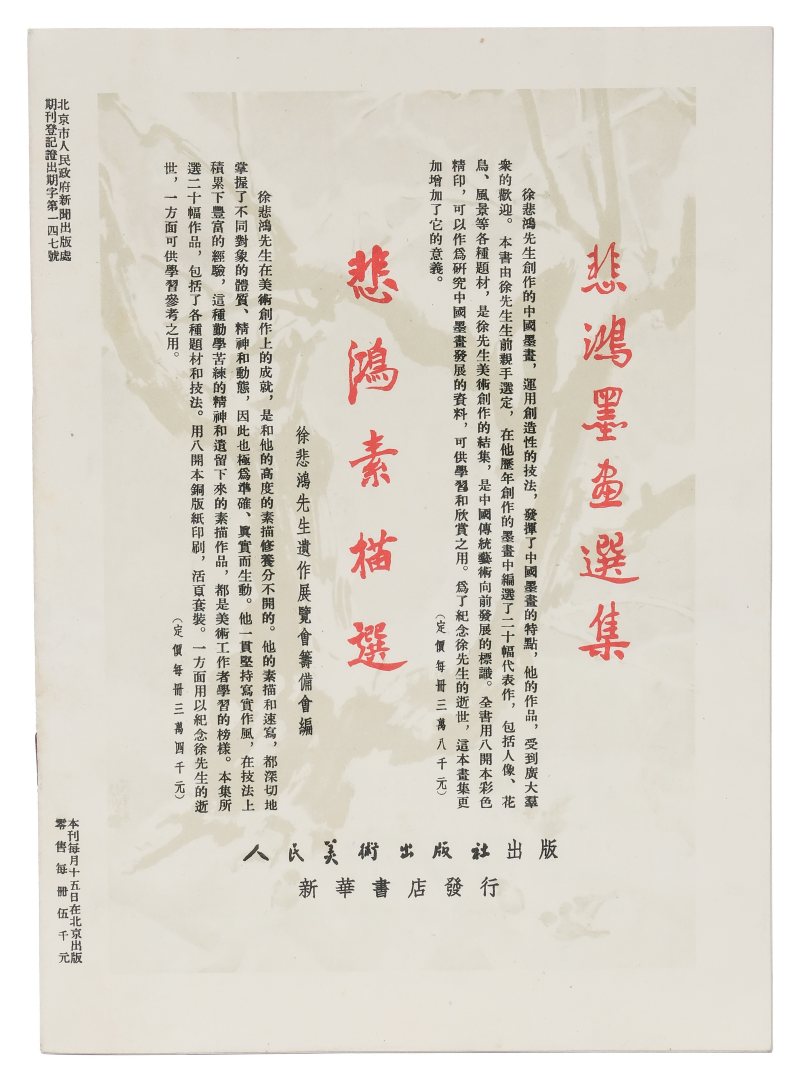 悲鴻墨画選集
徐悲鴻先生創作的中國墨畫，運用創造性的技法，發揮了中國墨畫的特點，他的作品，受到廣大羣
衆的歡迎。本書由徐先生生前親手選定，在他歷年創作的墨畫中編選了二十幅代表作，包括人像、花
鳥、風景等各種題材，是徐先生美術創作的結集，是中國傳統藝術向前發展的標識。全書用八開本彩色
精印，可以作爲研究中國墨畫發展的資料，可供學習和欣賞之用。爲了紀念徐先生的逝世，這本畫集更
加增加了它的意義。
（定價每冊三萬八千元）
悲鴻素描選
徐悲鴻先生遺作展覽會籌備會編
徐悲鴻先生在美術創作上的成就，是和他的高度的素描修養分不開的。他的素描和速寫，都深切地
掌握了不同對象的體質、精神和動態，因此也極爲準確、眞實而生動。他一貫堅持寫實作風，在技法上
積累下豐富的經驗，這種勤學苦練的精神和遺留下來的素描作品，都是美術工作者學習的榜樣。本集所
選二十幅作品，包括了各種題材和技法。用八開本銅版紙印刷，活頁套裝。一方面用以紀念徐先生的逝
世，一方面可供學習參考之用。
（定價每冊三萬四千元）
人民美術出版社出版
新華書店發行
北京市人民政府新聞出版處
期刊登記證出期字第一四七號
本刊每月十五日在北京出版
零售每冊伍千元